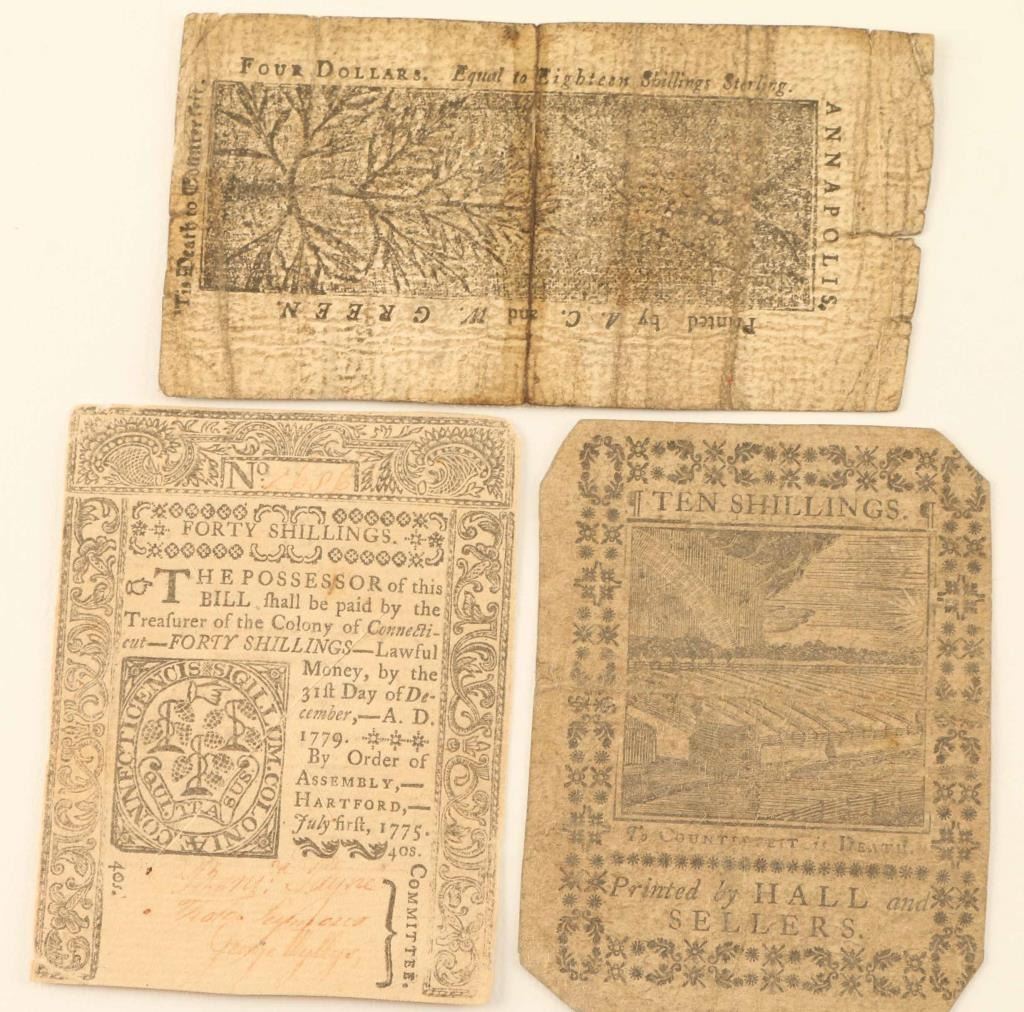 FOUR DOLLARS. Equal to Eighteen Shillings Sterling.
'Tis Death to Counterfeit.
ANNAPOLIS,
Printed by A. C. and W. GREEN.
No.
FORTY SHILLINGS.
THE POSSESSOR of this
BILL ſhall be paid by the
Treaſurer of the Colony of Connecti-
cut—FORTY SHILLINGS—Lawful
Money, by the
31ſt Day of De-
cember,—A. D.
1779.
By Order of
ASSEMBLY,—
HARTFORD,—
July firſt, 1775.
40s.
SIGILLUM. COLONIÆ. CONNECTICENCIS
QUI TRA SUS
40s.
COMMITTEE.
¶TEN SHILLINGS.¶
To COUNTERFEIT is DEATH.
Printed by HALL and
SELLERS.